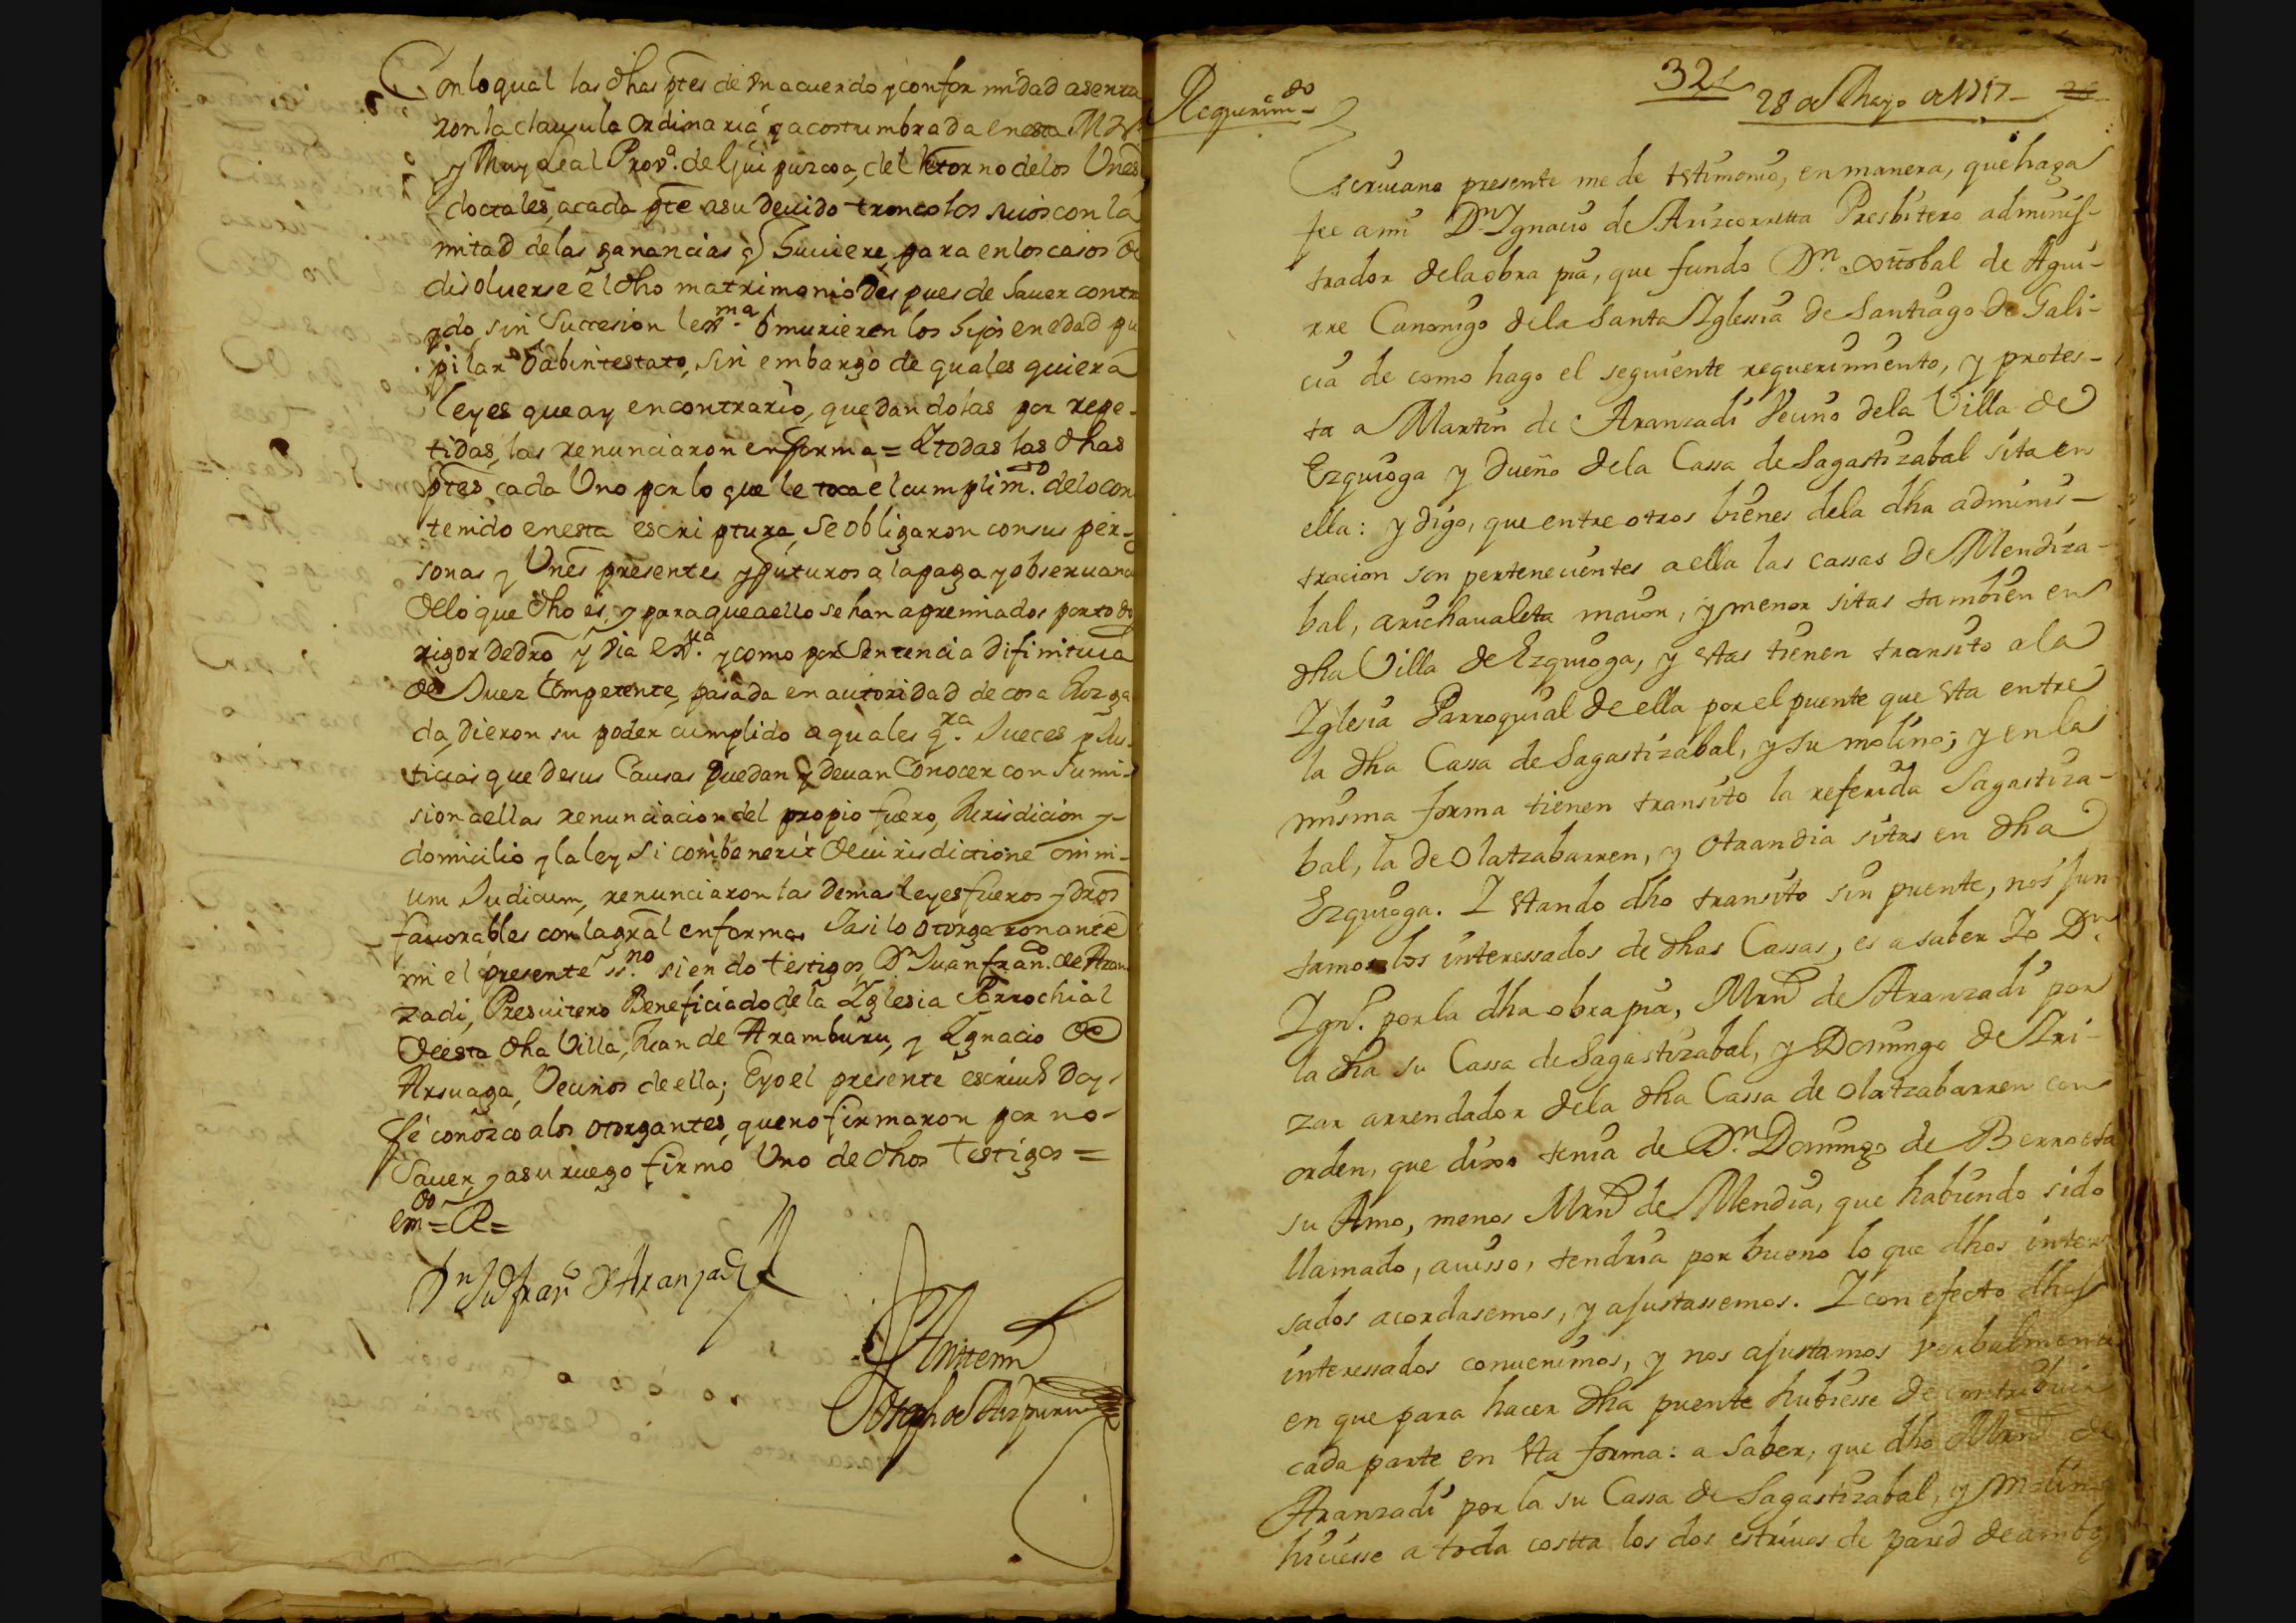 Con lo qual las dhas ptes de Vn acuerdo y confor midad asenta
ron la clausula ordinaria y acostumbrada en esta M N.
y Muy Leal Prov.ª de Guipuzcoa, del Retorno de los Vnes
doctales, acada pte asu deuido tronco los suios con la
mitad de las ganancias q huuiere, para en los casos de
disoluerse el dho matrimonio Despues de hauer contra
ydo, sin Succesion lex.ma ó murieren los hijos en edad pu
pilar ó abintestato, sin embargo de quales quiera
leyes que ay en contrario, que dandolas por repe-
tidas, las renunciaron en forma = Y todas las dhas
ptes, cada Vno por lo que le toca el cumplim.to delo con
tenido en esta escriptura, Se obligaron con sus per-
sonas y Vnes presentes y futuros a la paga y obseruan
dello que dho es, y para que aello se han apremiados por todo
rigor de dro y Via ex.va y como por Sentencia difinitiua
de Juez Competente, pasada en autoridad de cosa Iuzga
da, dieron su poder cumplido a quales q.ra Jueces y Jus
ticias que desus Causas puedan y deuan Conocer con Sumi-
sion aellas renunciacion del propio fuero, Iurisdicion y
domicilio y la ley Si combenerit de iurisdictione omni-
um Judicum, renunciaron las demas leyes fueros y dros
fauorables con la gral en forma. Y asi lo otorgaron ante
mi el presente ss.no siendo testigos, Dn Juan fran.co de Aran
zadi, Presuitero Beneficiado de la Yglesia Parrochial
de esta dha Villa, Iuan de Aramburu, y Ygnacio de
Arsuaga, Vecinos de ella; E yo el presente escriuo Doy
fé conozco a los otorgantes, que no firmaron por no-
Sauer, y asu ruego firmo Vno de dhos Testigos =
em.do = R =
Dn Ju fran.co de Aranzadi
Antemi
Joseph de Aizpuru
Requerim.to
321
28 de Mayo de 1717
Escriuano presente me de testimonio, en manera, que haga
fee a mi Dn Ygnacio de Arizcorretta Presbitero adminis-
trador dela obra pia, que fundo Dn. xptobal de Agui-
rre Canonigo dela Santa Yglesia de Santiago de Gali-
cia de como hago el seguiente requerimiento, y protes-
ta a Martin de Aranzadi Vecino dela Villa de
Ezquioga y dueño dela Cassa de Sagastizabal sita en
ella: y digo, que entre otros bienes dela dha adminis-
tracion son pertenecientes a ella las cassas de Mendiza-
bal, arichaualeta maior, y menor sitas tambien en
dha Villa de Ezquioga, y estas tienen transito ala
Iglesia Parroquial de ella por el puente que esta entre
la dha Cassa de Sagastizabal, y su molino; y en la
misma forma tienen transito la referida Sagastiza-
bal, la de Olatzabarren, y Otaandia sitas en dha
Ezquioga. Y estando dho transito sin puente, nos jun
tamos los interessados de dhas Cassas, es a saber Yo Dn.
Ygn.o por la dha obra pia, Mrn de Aranzadi por
la dha su Cassa de Sagastizabal, y Domingo de Ari-
zar arrendador dela dha Cassa de Olatzabarren con
orden, que dixo tenia de Dn. Domingo de Berroeta
su Amo, menos Mrn de Mendia, que habiendo sido
llamado, auisso, tendria por bueno lo que dhos interes
sados acordasemos, y ajustassemos. Y con efecto dhos
interessados conuenimos, y nos ajustamos verbalmente
en que para hacer dha puente hubiesse de contribuir
cada parte en esta forma: a saber, que dho Mrn de
Aranzadi por la su Cassa de Sagastizabal, y Molino
hiciesse a toda costta los dos estriuos de pared de ambos